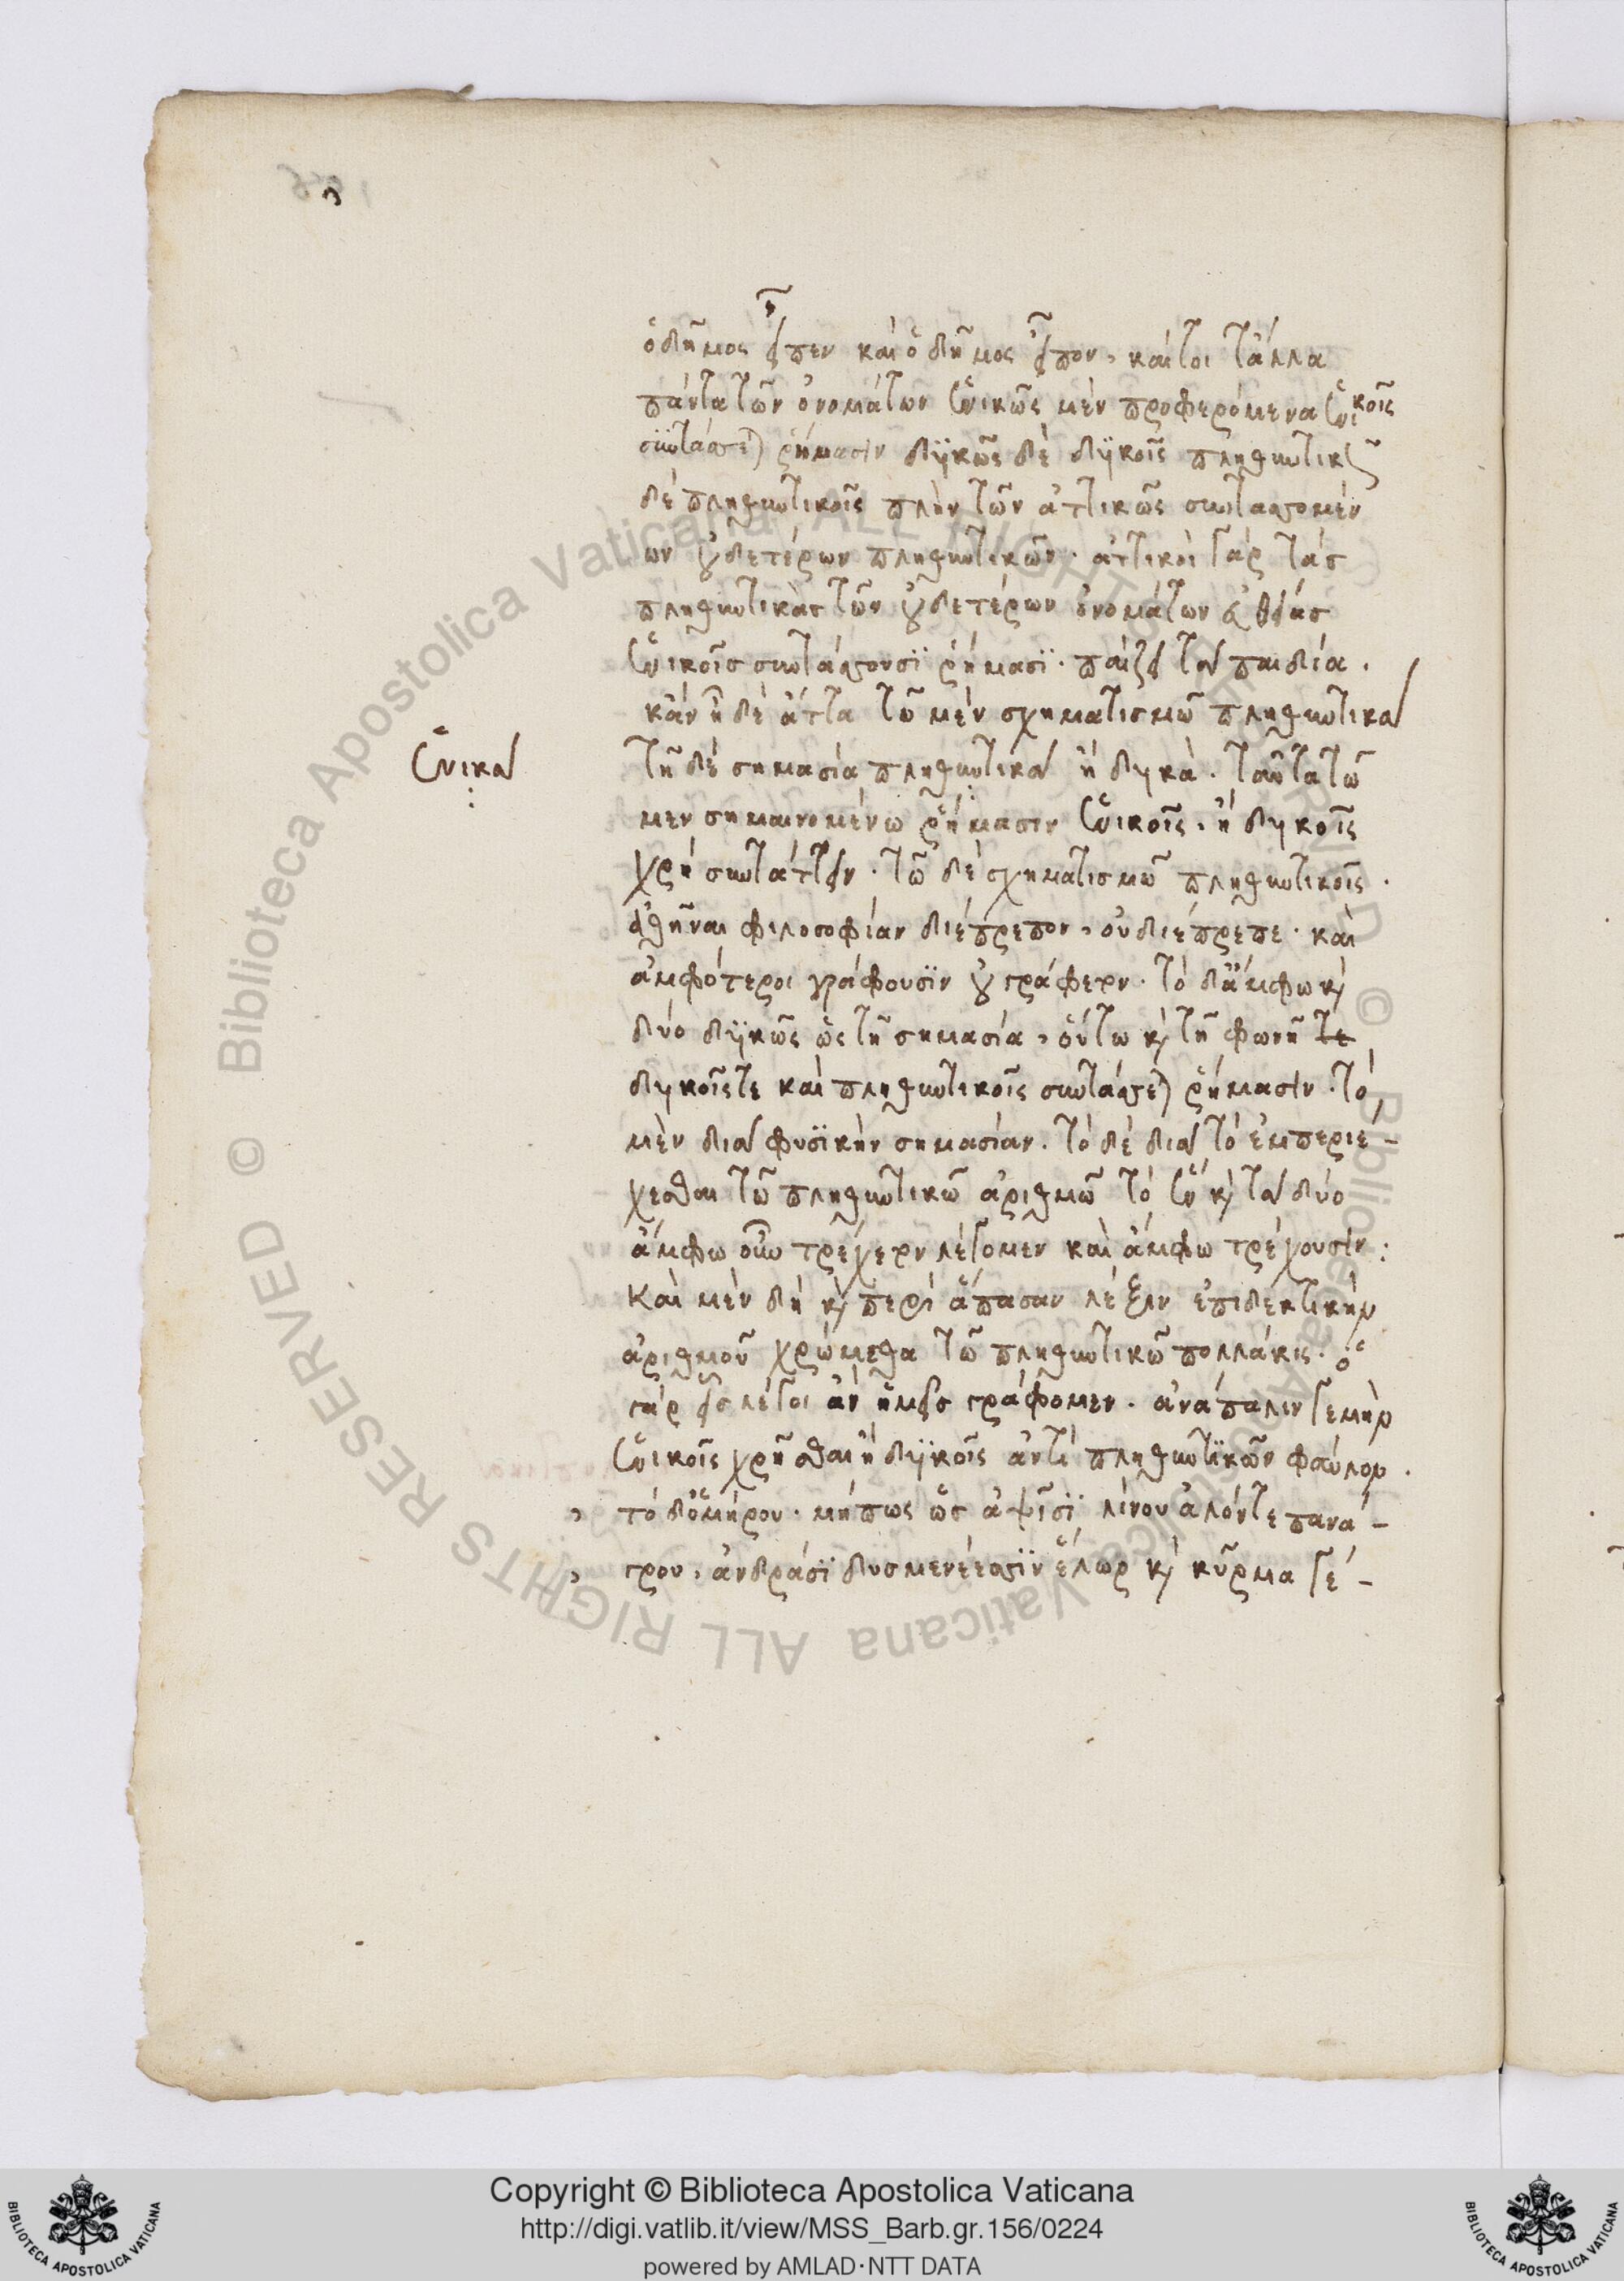 ὁ δῆμος εἶπεν καὶ ὁ δῆμος εἶπον, καίτοι τἄλλα
πάντα τῶν ὀνομάτων ἑνικῶς μὲν προφερόμενα ἑνικοῖς
συντάσσεται ῥήμασιν δυϊκῶς δὲ δυϊκοῖς πληθυντικῶς
δὲ πληθυντικοῖς πλὴν τῶν ἀττικῶς συντασσομέν
ων οὐδετέρων πληθυντικῶν. ἀττικοὶ γὰρ τὰς
πληθυντικὰς τῶν οὐδετέρων ὀνομάτων εὐθείας
ἑνικοῖς συντάσσουσϊ ῥήμασϊ. παίζει τὰ παιδία.
κἂν ᾖ δὲ ἄττα τῶ μὲν σχηματισμῶ πληθυντικὰ
ἑνικὰ
τῆ δὲ σημασία πληθυντικὰ ἢ δυικά. ταῦτα τῶ
μεν σημαινομένω ῥήμασιν ἑνικοῖς. ἢ δυικοῖς
χρὴ συντάττειν. τῶ δὲ σχηματισμῶ πληθυντικοῖς.
ἀθῆναι φιλοσοφίαν διέπρεπον, οὐ διέπρεπε. καὶ
ἀμφότεροι γράφουσϊν οὐ γράφειν. τὸ δ' ἄμφω καὶ
δύο δυϊκῶς ὡς τῆ σημασία, οὕτω καὶ τῆ φωνῆ τε
δυικοῖς τε καὶ πληθυντικοῖς συντάσσεται ῥήμασιν. τὸ
μὲν διὰ φυσϊκὴν σημασίαν. τὸ δὲ διὰ τὸ ἐμπεριέ-
χεσθαι τῶ πληθυντικῶ ἀριθμῶ τὸ ἓν καὶ τὰ δύο
ἄμφω οὖν τρέχειν λέγομεν καὶ ἄμφω τρέχουσιν:
Καὶ μὲν δὴ καὶ περὶ ἅπασαν λέξιν ἐπιδεκτικὴν
ἀριθμοῦ χρώμεθα τῶ πληθυντικῶ πολλάκις. ὁ
γὰρ εἷς λέγοι ἂν ἡμεῖς γράφομεν. ἀνάπαλιν γεμὴν
ἑνικοῖς χρῆσθαι ἢ δυϊκοῖς ἀντὶ πληθυντϊκῶν φαύλον.
, τὸ δ' ὁμήρου. μήπως ὡς ἀψῖσϊ λίνου ἁλόντε πανά-
, γρου, ἀνδράσϊ δυσμενέεσσϊν ἕλωρ καὶ κῦρμα γέ-
Copyright © Biblioteca Apostolica Vaticana
http://digi.vatlib.it/view/MSS_Barb.gr.156/0224
powered by AMLAD·NTT DATA